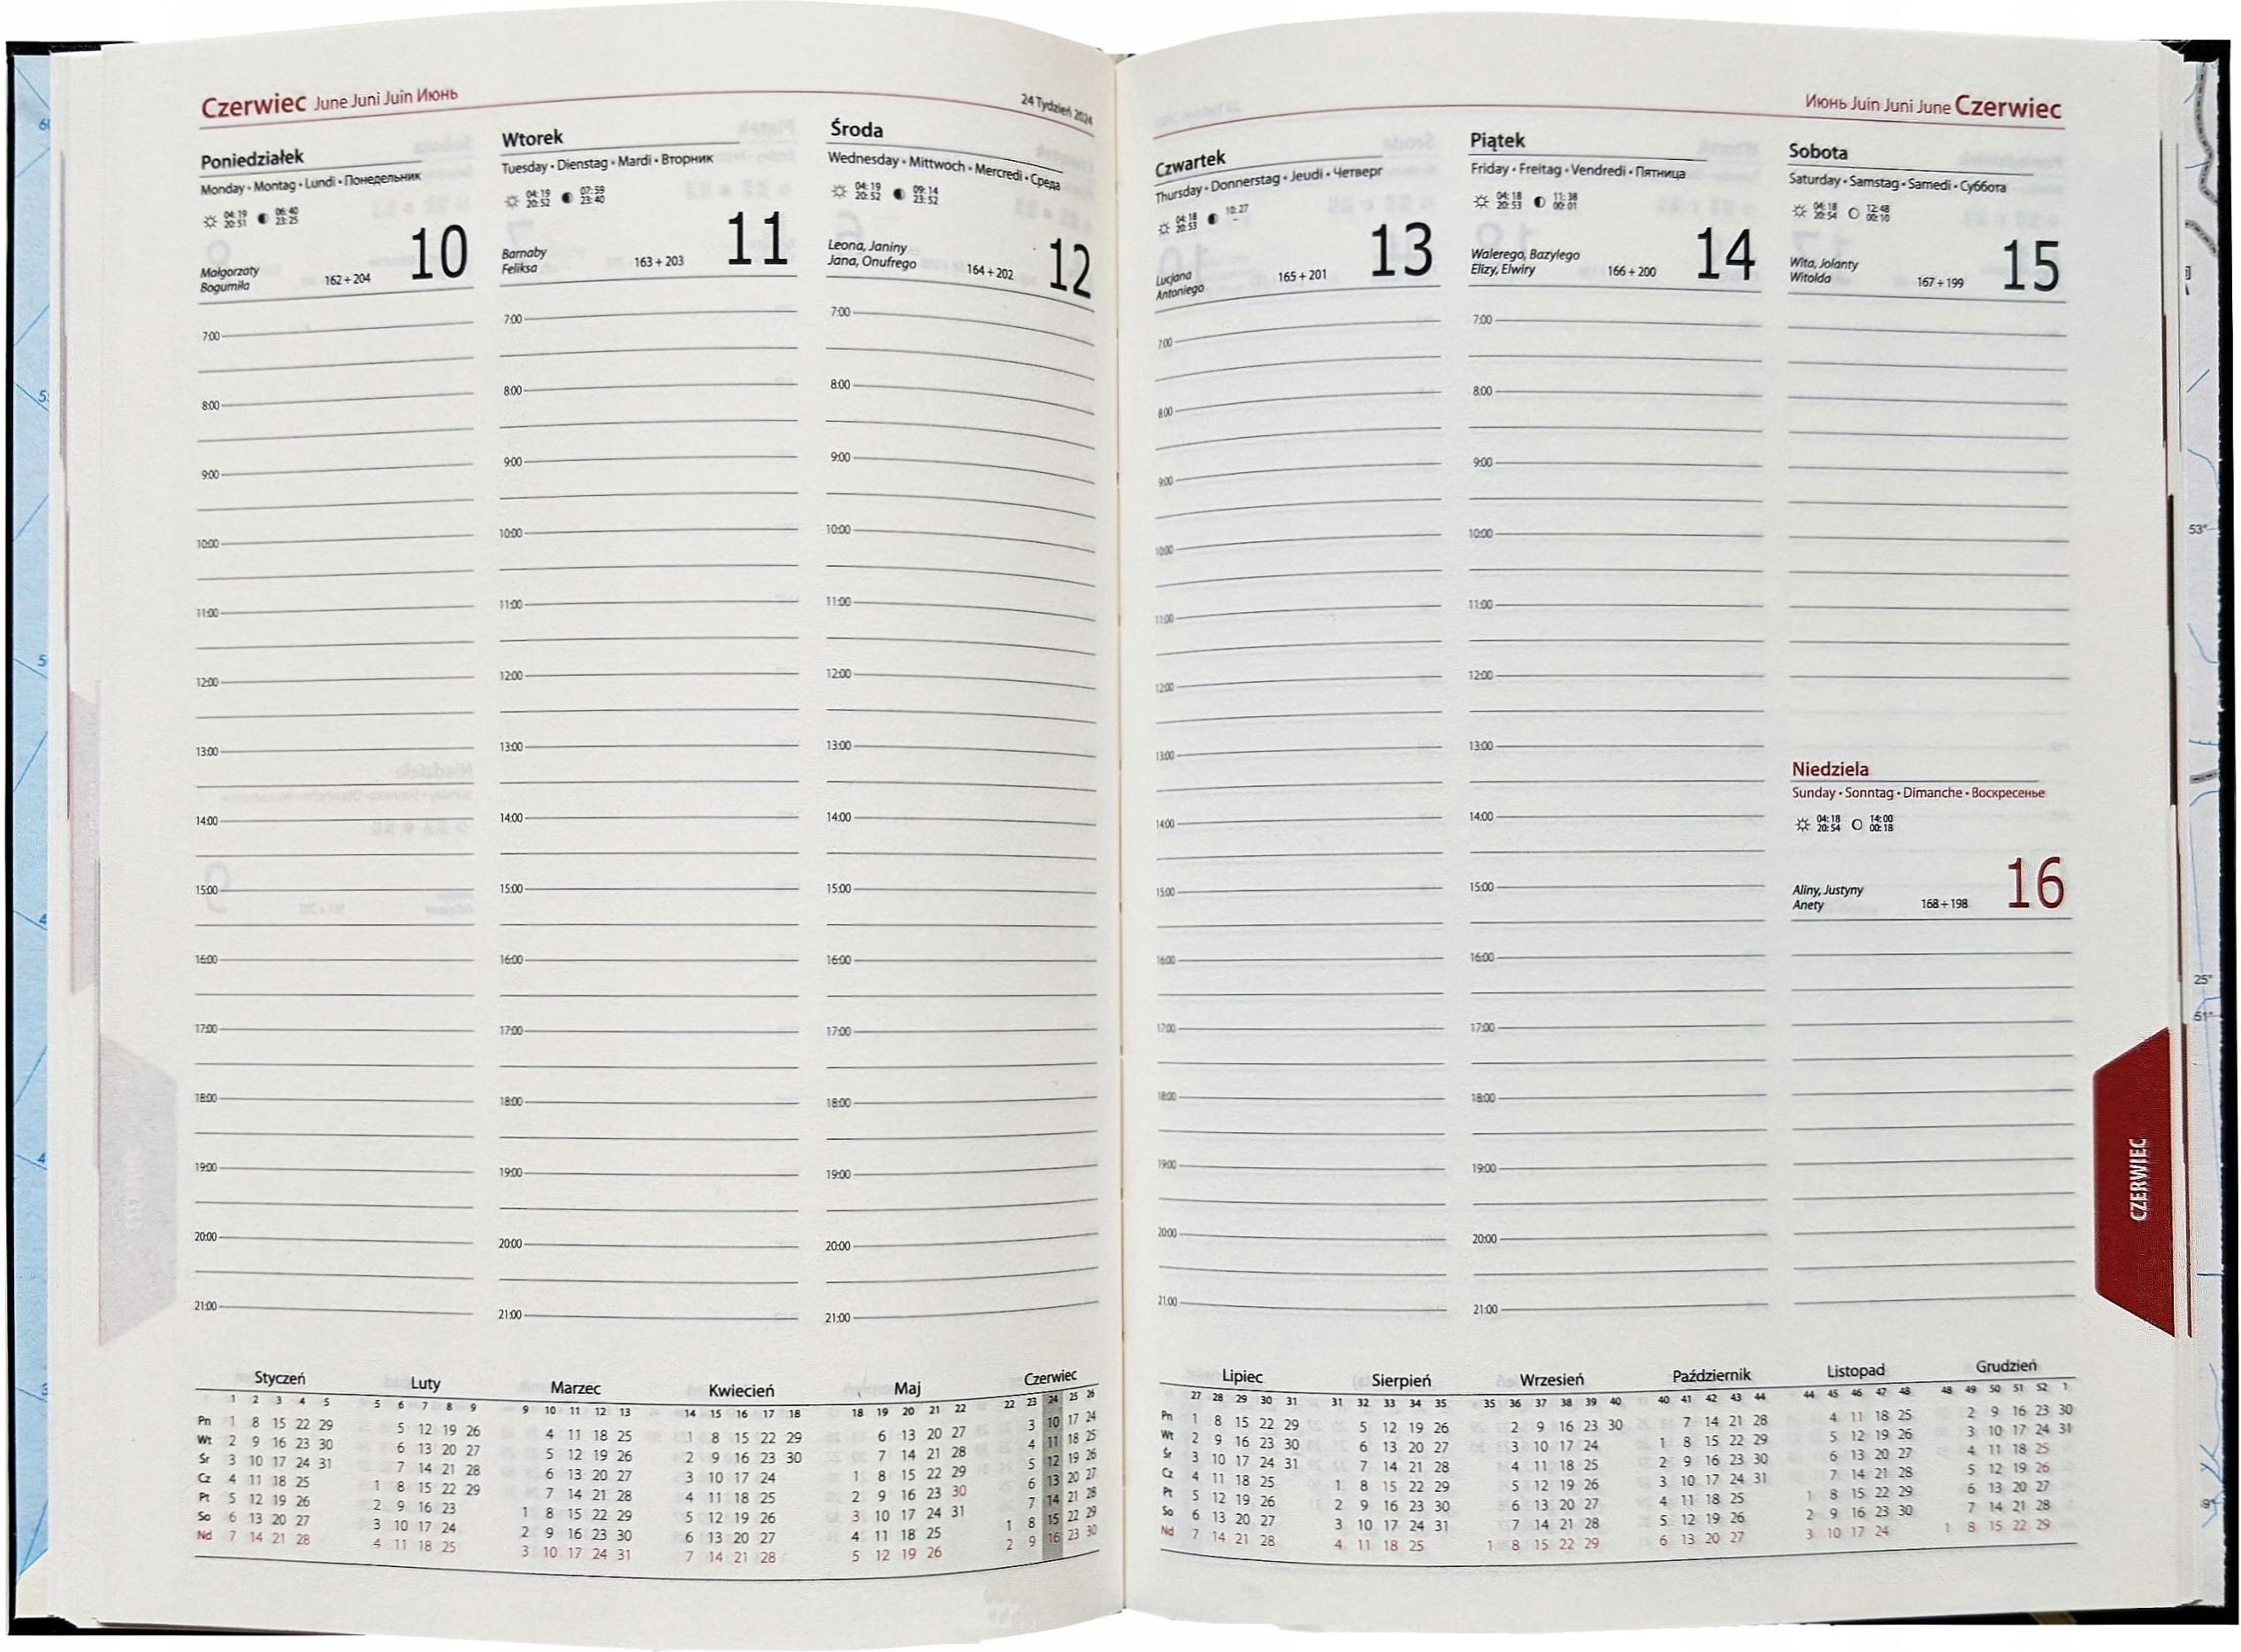 Czerwiec June Juni Juin Июнь
24 Tydzień 2024
Poniedziałek
Monday • Montag • Lundi • Понедельник
04:19 06:40
20:51 23:25
Małgorzaty
Bogumiła 162+204 10
7:00
8:00
9:00
10:00
11:00
12:00
13:00
14:00
15:00
16:00
17:00
18:00
19:00
20:00
21:00
Wtorek
Tuesday • Dienstag • Mardi • Вторник
04:19 07:59
20:52 23:40
Barnaby
Feliksa 163+203 11
7:00
8:00
9:00
10:00
11:00
12:00
13:00
14:00
15:00
16:00
17:00
18:00
19:00
20:00
21:00
Środa
Wednesday • Mittwoch • Mercredi • Среда
04:19 09:14
20:52 23:52
Leona, Janiny
Jana, Onufrego 164+202 12
7:00
8:00
9:00
10:00
11:00
12:00
13:00
14:00
15:00
16:00
17:00
18:00
19:00
20:00
21:00
Июнь Juin Juni June Czerwiec
Czwartek
Thursday • Donnerstag • Jeudi • Четверг
04:18 10:27
20:53 –
Lucjana
Antoniego 165+201 13
7:00
8:00
9:00
10:00
11:00
12:00
13:00
14:00
15:00
16:00
17:00
18:00
19:00
20:00
21:00
Piątek
Friday • Freitag • Vendredi • Пятница
04:18 11:38
20:53 00:01
Walerego, Bazylego
Elizy, Elwiry 166+200 14
7:00
8:00
9:00
10:00
11:00
12:00
13:00
14:00
15:00
16:00
17:00
18:00
19:00
20:00
21:00
Sobota
Saturday • Samstag • Samedi • Суббота
04:18 12:48
20:54 00:10
Wita, Jolanty
Witolda 167+199 15
Niedziela
Sunday • Sonntag • Dimanche • Воскресенье
04:18 14:00
20:54 00:18
Aliny, Justyny
Anety 168+198 16
CZERWIEC
Styczeń
1 2 3 4 5
Pn 1 8 15 22 29
Wt 2 9 16 23 30
Śr 3 10 17 24 31
Cz 4 11 18 25
Pt 5 12 19 26
So 6 13 20 27
Nd 7 14 21 28
Luty
5 6 7 8 9
5 12 19 26
6 13 20 27
7 14 21 28
1 8 15 22 29
2 9 16 23
3 10 17 24
4 11 18 25
Marzec
9 10 11 12 13
4 11 18 25
5 12 19 26
6 13 20 27
7 14 21 28
1 8 15 22 29
2 9 16 23 30
3 10 17 24 31
Kwiecień
14 15 16 17 18
1 8 15 22 29
2 9 16 23 30
3 10 17 24
4 11 18 25
5 12 19 26
6 13 20 27
7 14 21 28
Maj
18 19 20 21 22
6 13 20 27
7 14 21 28
1 8 15 22 29
2 9 16 23 30
3 10 17 24 31
4 11 18 25
5 12 19 26
Czerwiec
22 23 24 25 26
3 10 17 24
4 11 18 25
5 12 19 26
6 13 20 27
7 14 21 28
1 8 15 22 29
2 9 16 23 30
Lipiec
27 28 29 30 31
Pn 1 8 15 22 29
Wt 2 9 16 23 30
Śr 3 10 17 24 31
Cz 4 11 18 25
Pt 5 12 19 26
So 6 13 20 27
Nd 7 14 21 28
Sierpień
31 32 33 34 35
5 12 19 26
6 13 20 27
7 14 21 28
1 8 15 22 29
2 9 16 23 30
3 10 17 24 31
4 11 18 25
Wrzesień
35 36 37 38 39 40
2 9 16 23 30
3 10 17 24
4 11 18 25
5 12 19 26
6 13 20 27
7 14 21 28
1 8 15 22 29
Październik
40 41 42 43 44
7 14 21 28
1 8 15 22 29
2 9 16 23 30
3 10 17 24 31
4 11 18 25
5 12 19 26
6 13 20 27
Listopad
44 45 46 47 48
4 11 18 25
5 12 19 26
6 13 20 27
7 14 21 28
1 8 15 22 29
2 9 16 23 30
3 10 17 24
Grudzień
48 49 50 51 52 1
2 9 16 23 30
3 10 17 24 31
4 11 18 25
5 12 19 26
6 13 20 27
7 14 21 28
1 8 15 22 29
53°
25°
51°